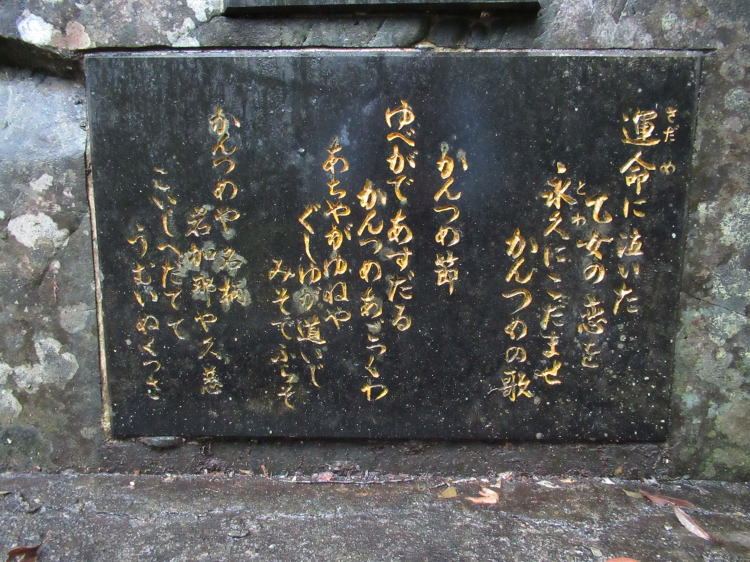 さだめ
運命に泣いた
乙女の恋を
とわ
永えにこだませ
かんつめの歌
かんつめ節
ゆべがであすだる
かんつめあごくわ
あちやがゆねや
ぐしゆが道いじ
みそでふらそ
かんつめや名柄
岩加那や久慈
こいしへだてて
うむいぬくつさ